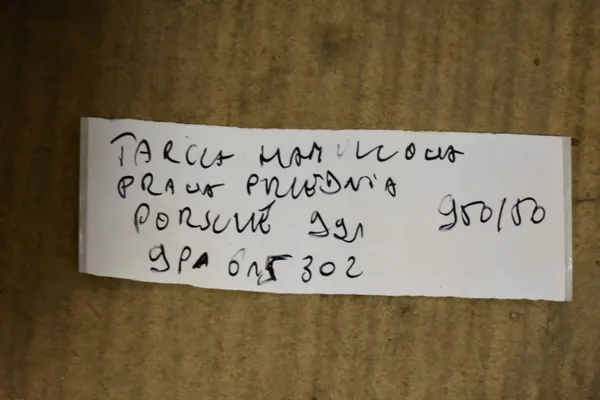 TARCZA HAMULCOWA
PRAWA PRZEDNIA
PORSCHE 991 950/50
9PA 615 302